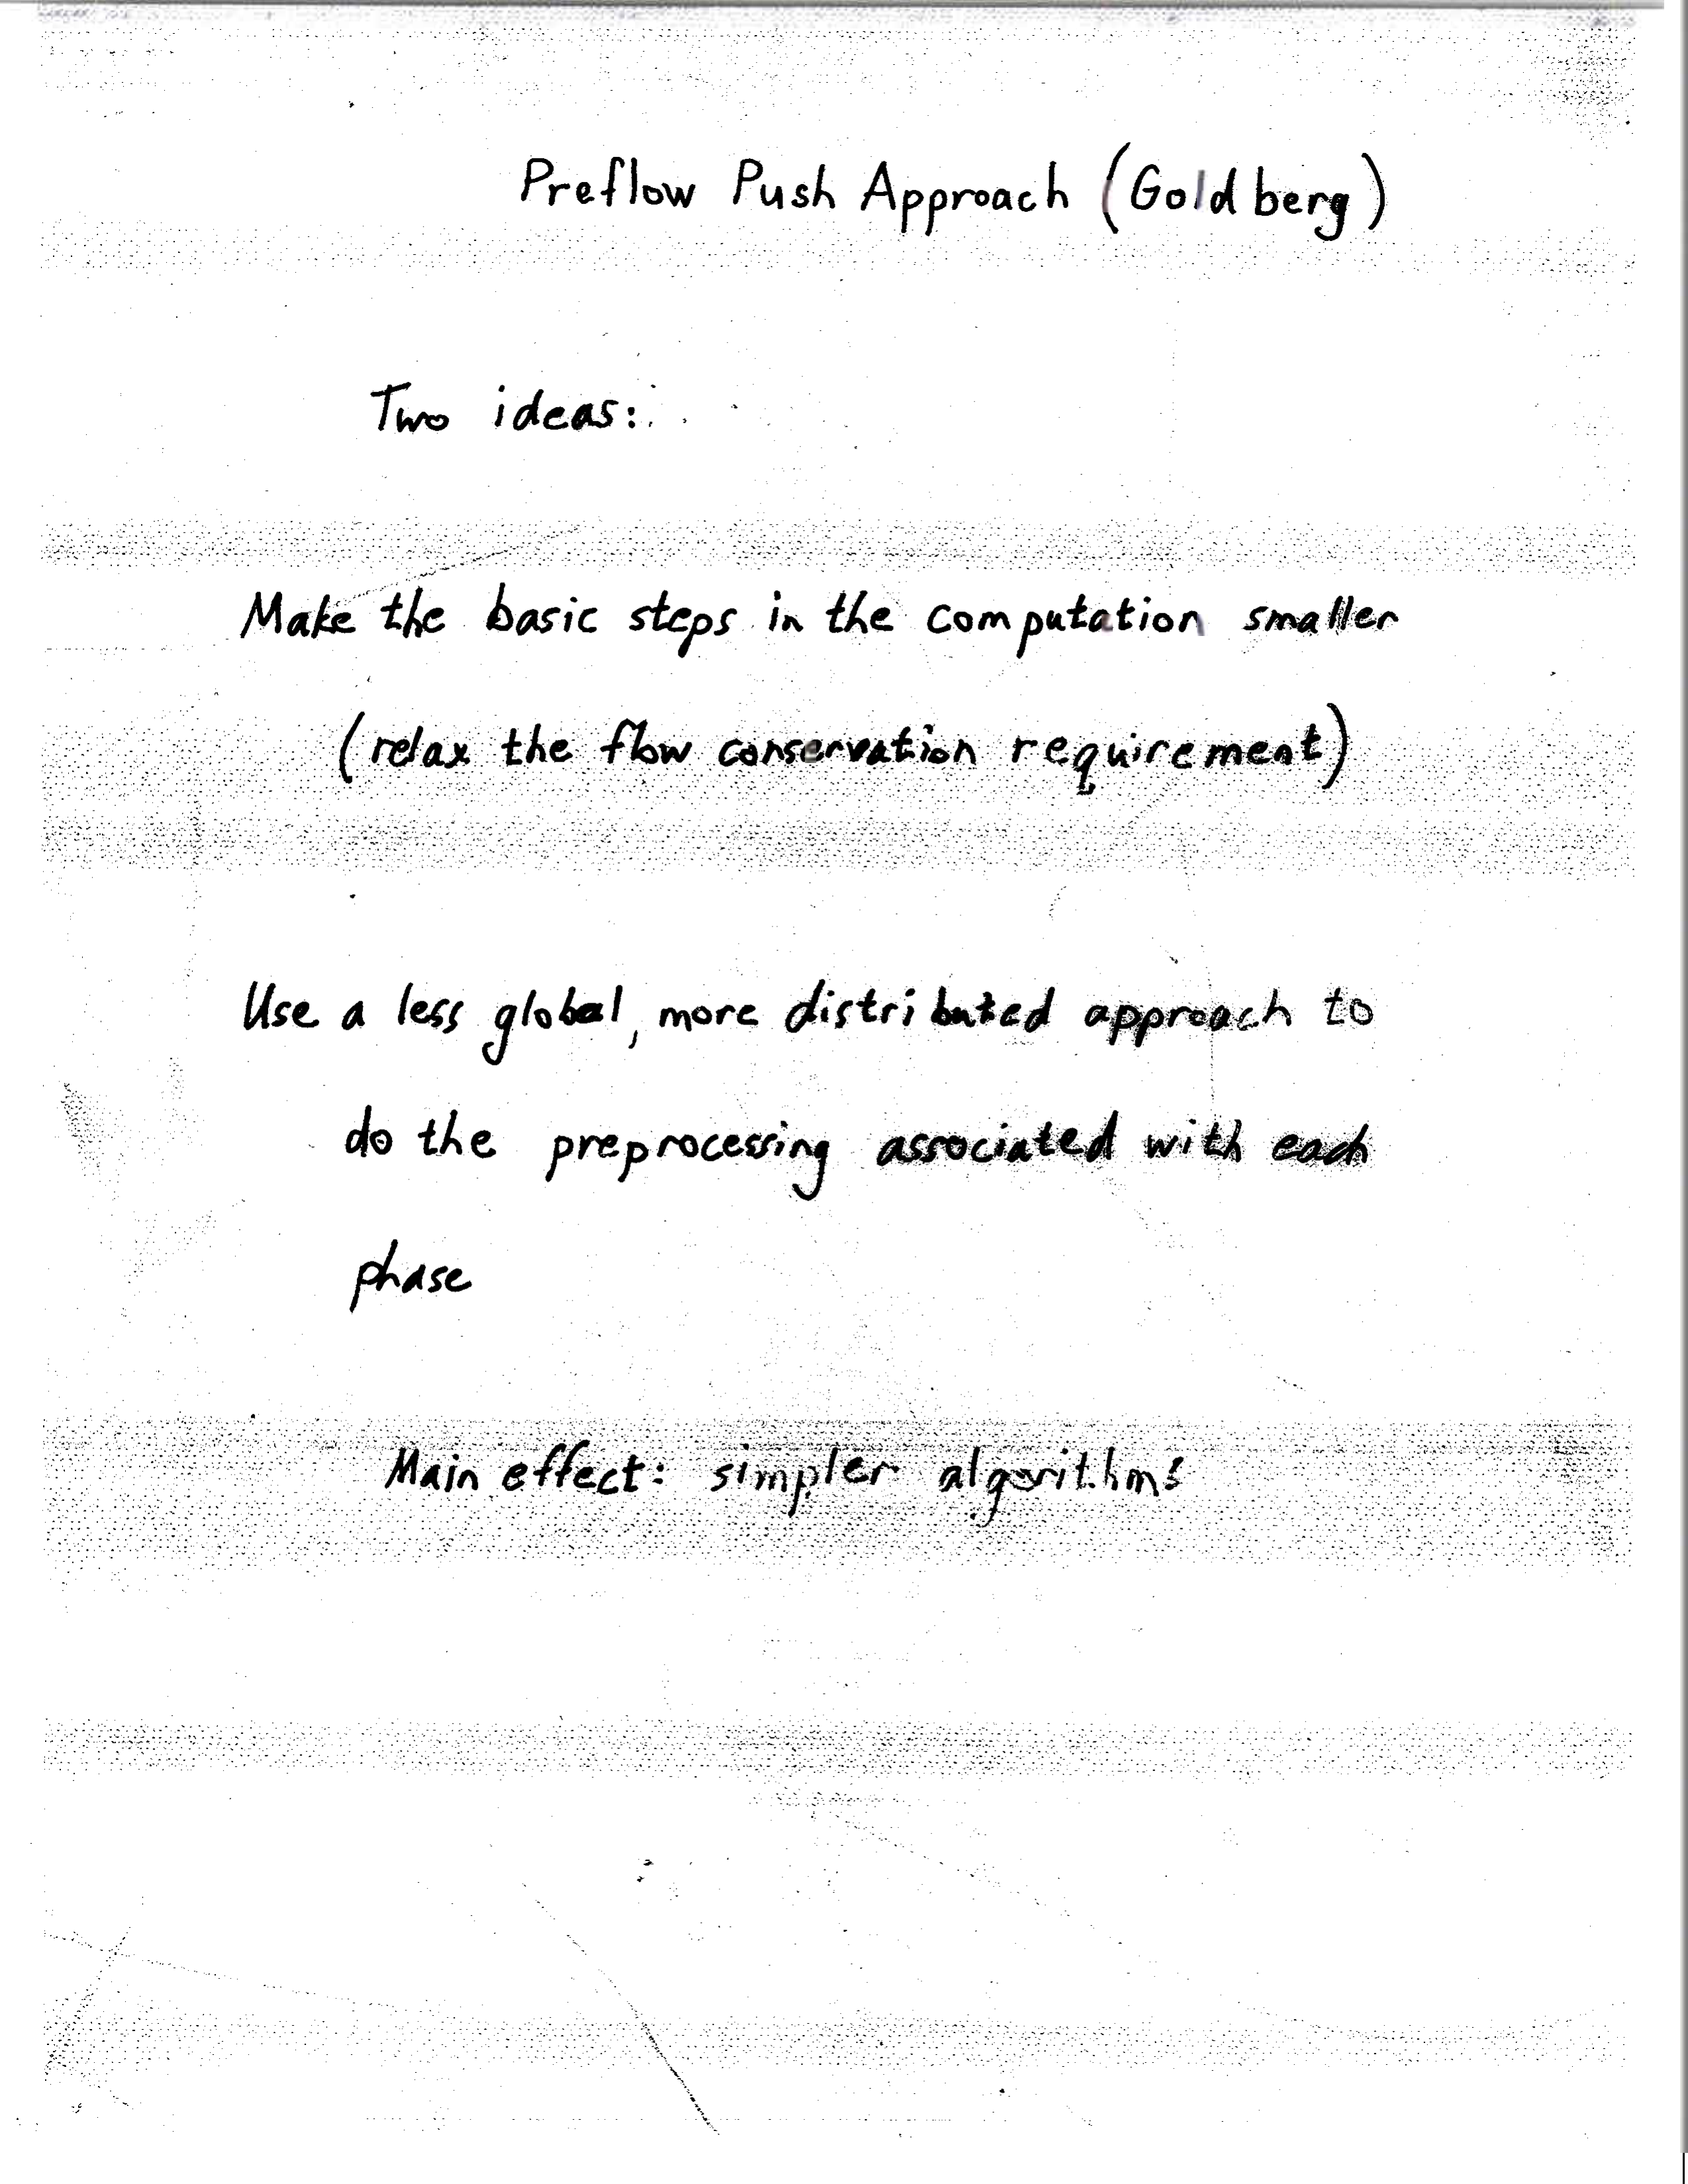 Preflow Push Approach (Goldberg)
Two ideas:
Make the basic steps in the computation smaller
(relax the flow conservation requirement)
Use a less global, more distributed approach to
do the preprocessing associated with each
phase
Main effect: simpler algorithms